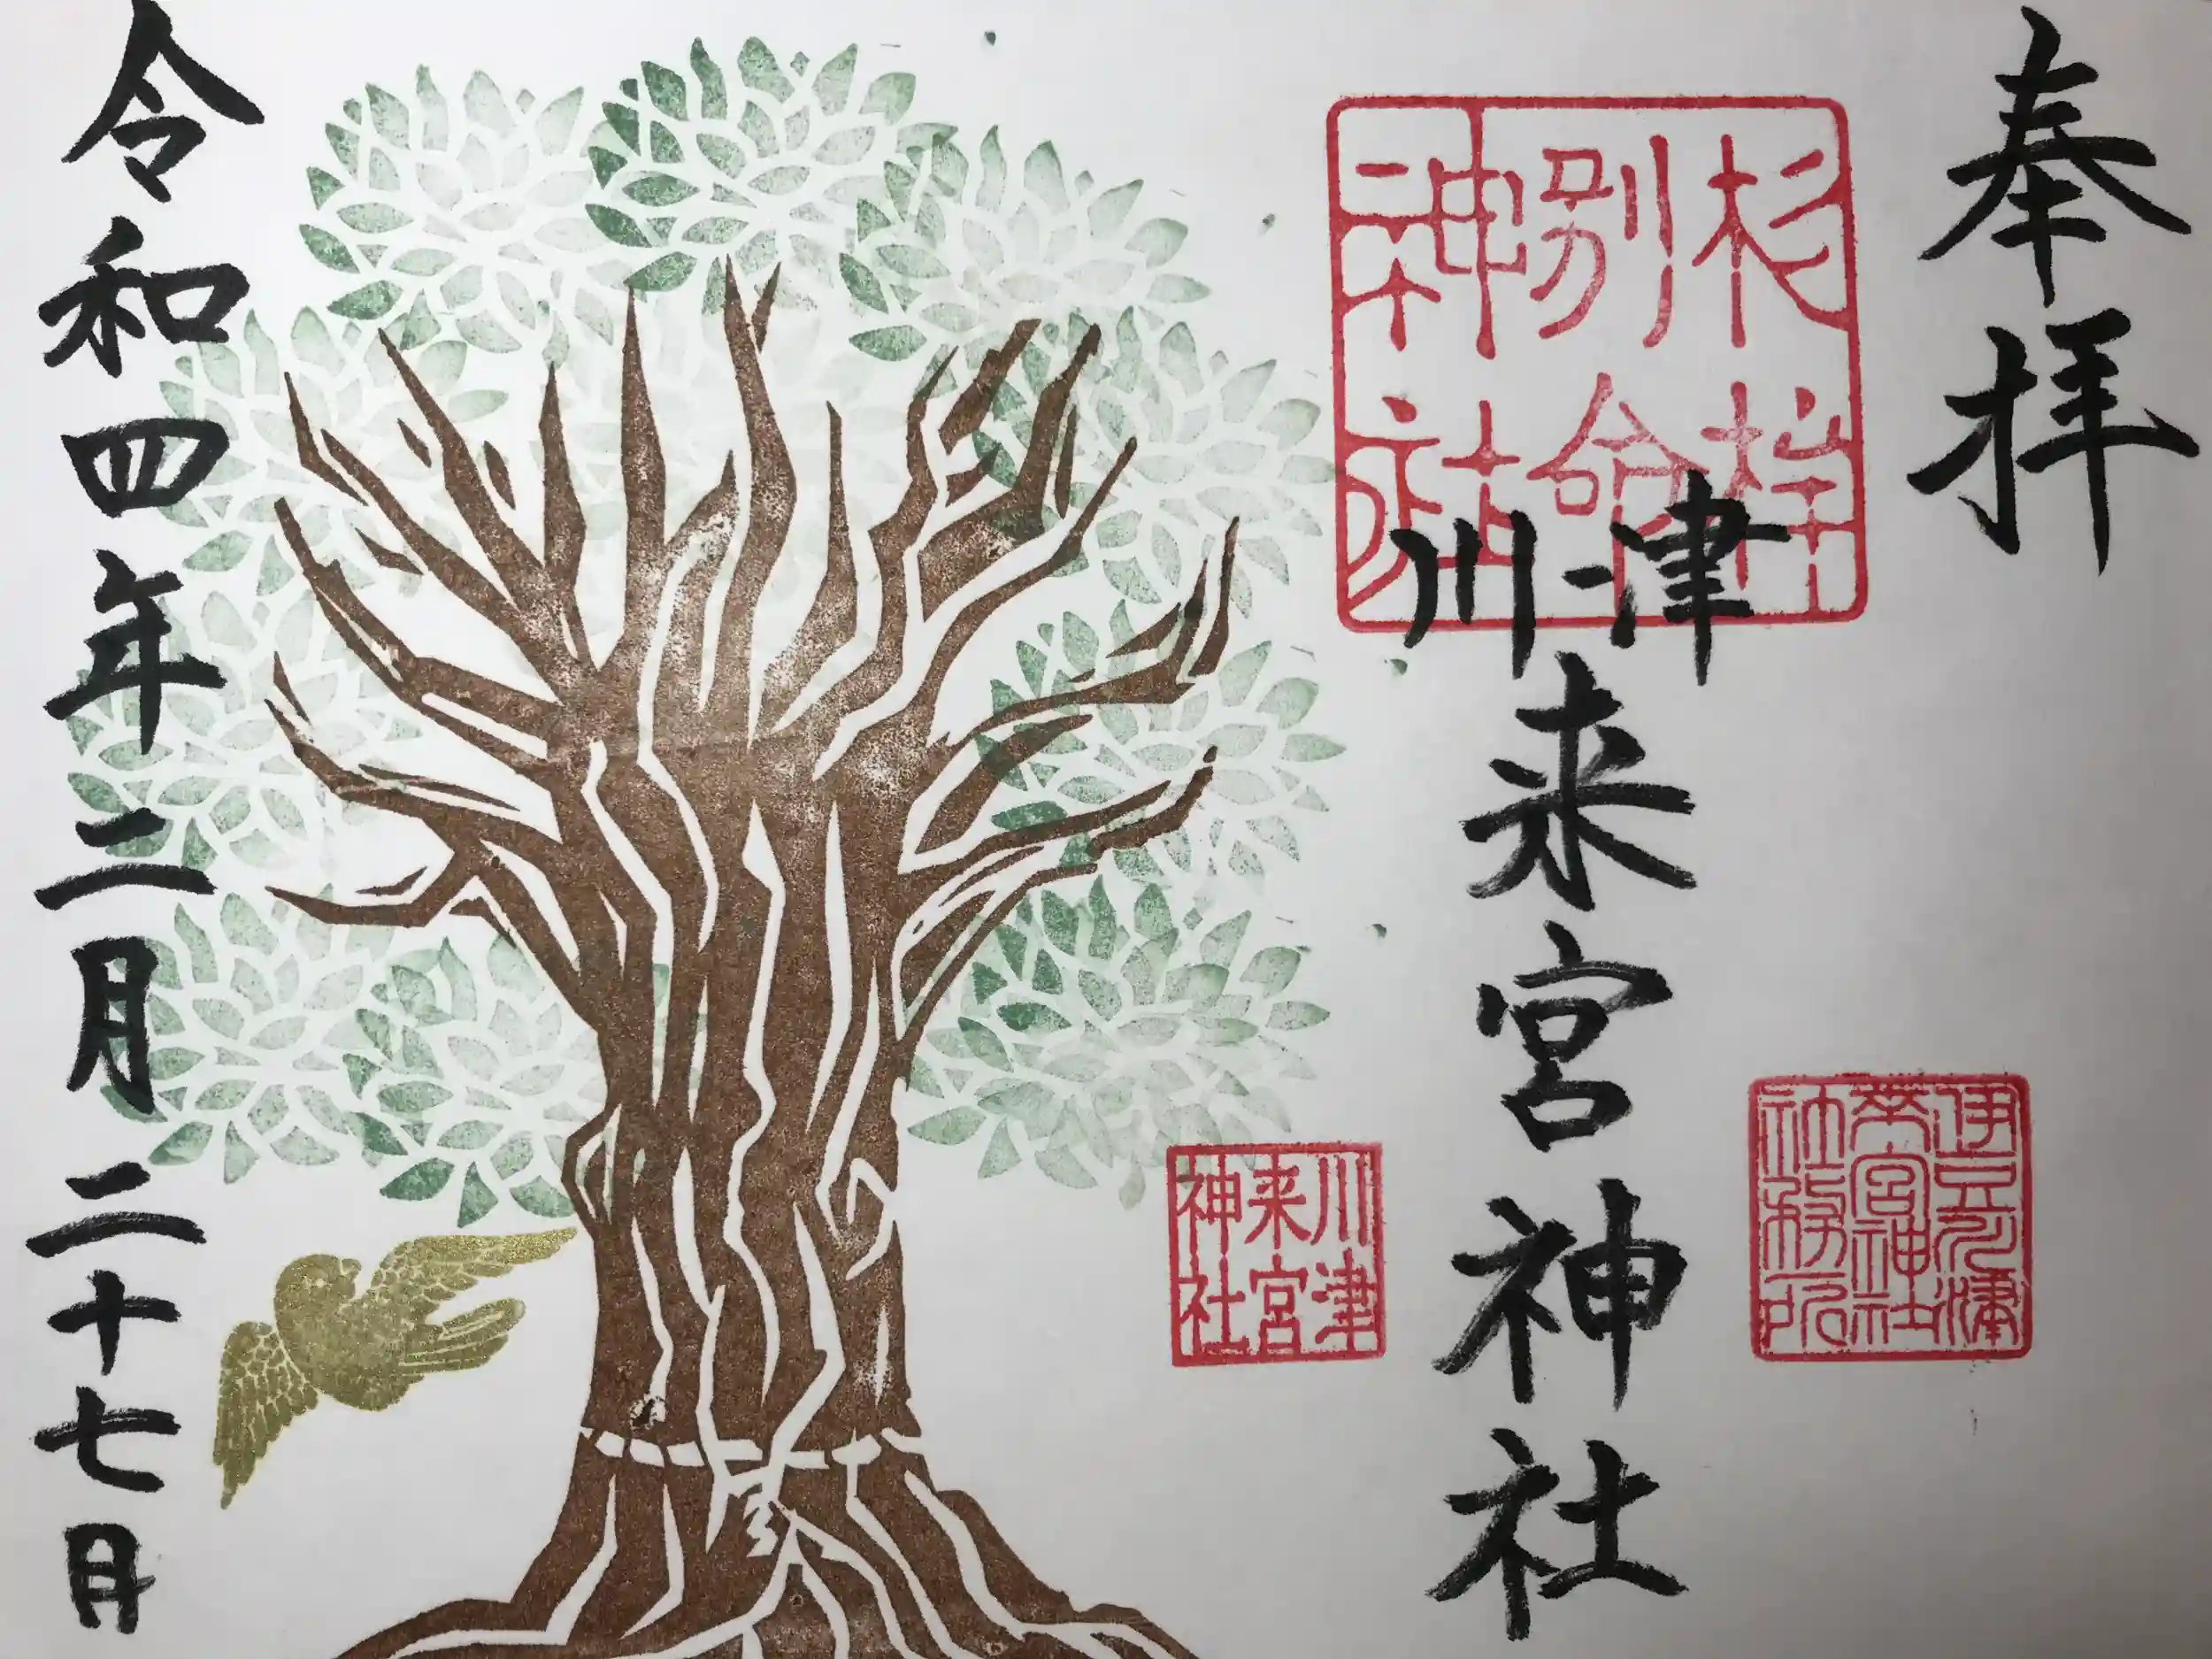 奉拝
杉桙
別命
神社
川津
来宮神社
伊豆川津
来宮神社
社務所
川津
来宮
神社
令和四年二月二十七日